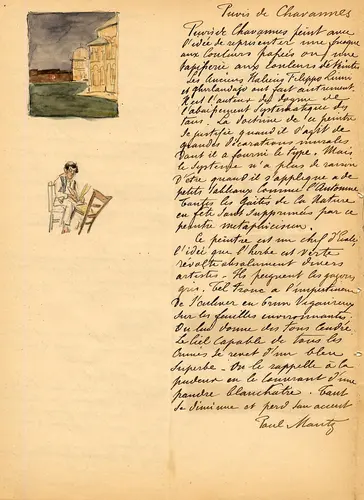 Puvis de Chavannes
Puvis de Chavannes peint avec
l'idée de représenter une fresque
aux couleurs passées ou une
tapisserie aux couleurs déteintes
Les Anciens Italiens Filippo Lippi
et Ghirlandajo ont fait autrement
Il est l'auteur du dogme de
l'abaissement systématique des
tons. La doctrine de ce peintre
se justifie quand il s'agit de
grandes décorations murales
dont il a fourni le type. Mais
le système n'a plus de raison
d'être quand il s'applique à de
petits tableaux comme l'Automne
toutes les gaités de la Nature
en fête sont supprimées par ce
peintre métaphysicien.
Ce peintre est un chef d'école
l'idée que l'herbe est verte
révolte absolument divers
artistes. Ils peignent les gazons
gris. Tel tronc a l'impertinence
de s'enlever en brun vigoureux
sur les feuilles environnantes.
On leur donne des tons cendrés
Le Ciel capable de tous les
crimes se revêt d'un bleu
superbe. On le rappelle à la
pudeur en le couvrant d'une
poudre blanchatre. Tout
se diminue et perd son accent
Paul Mantz